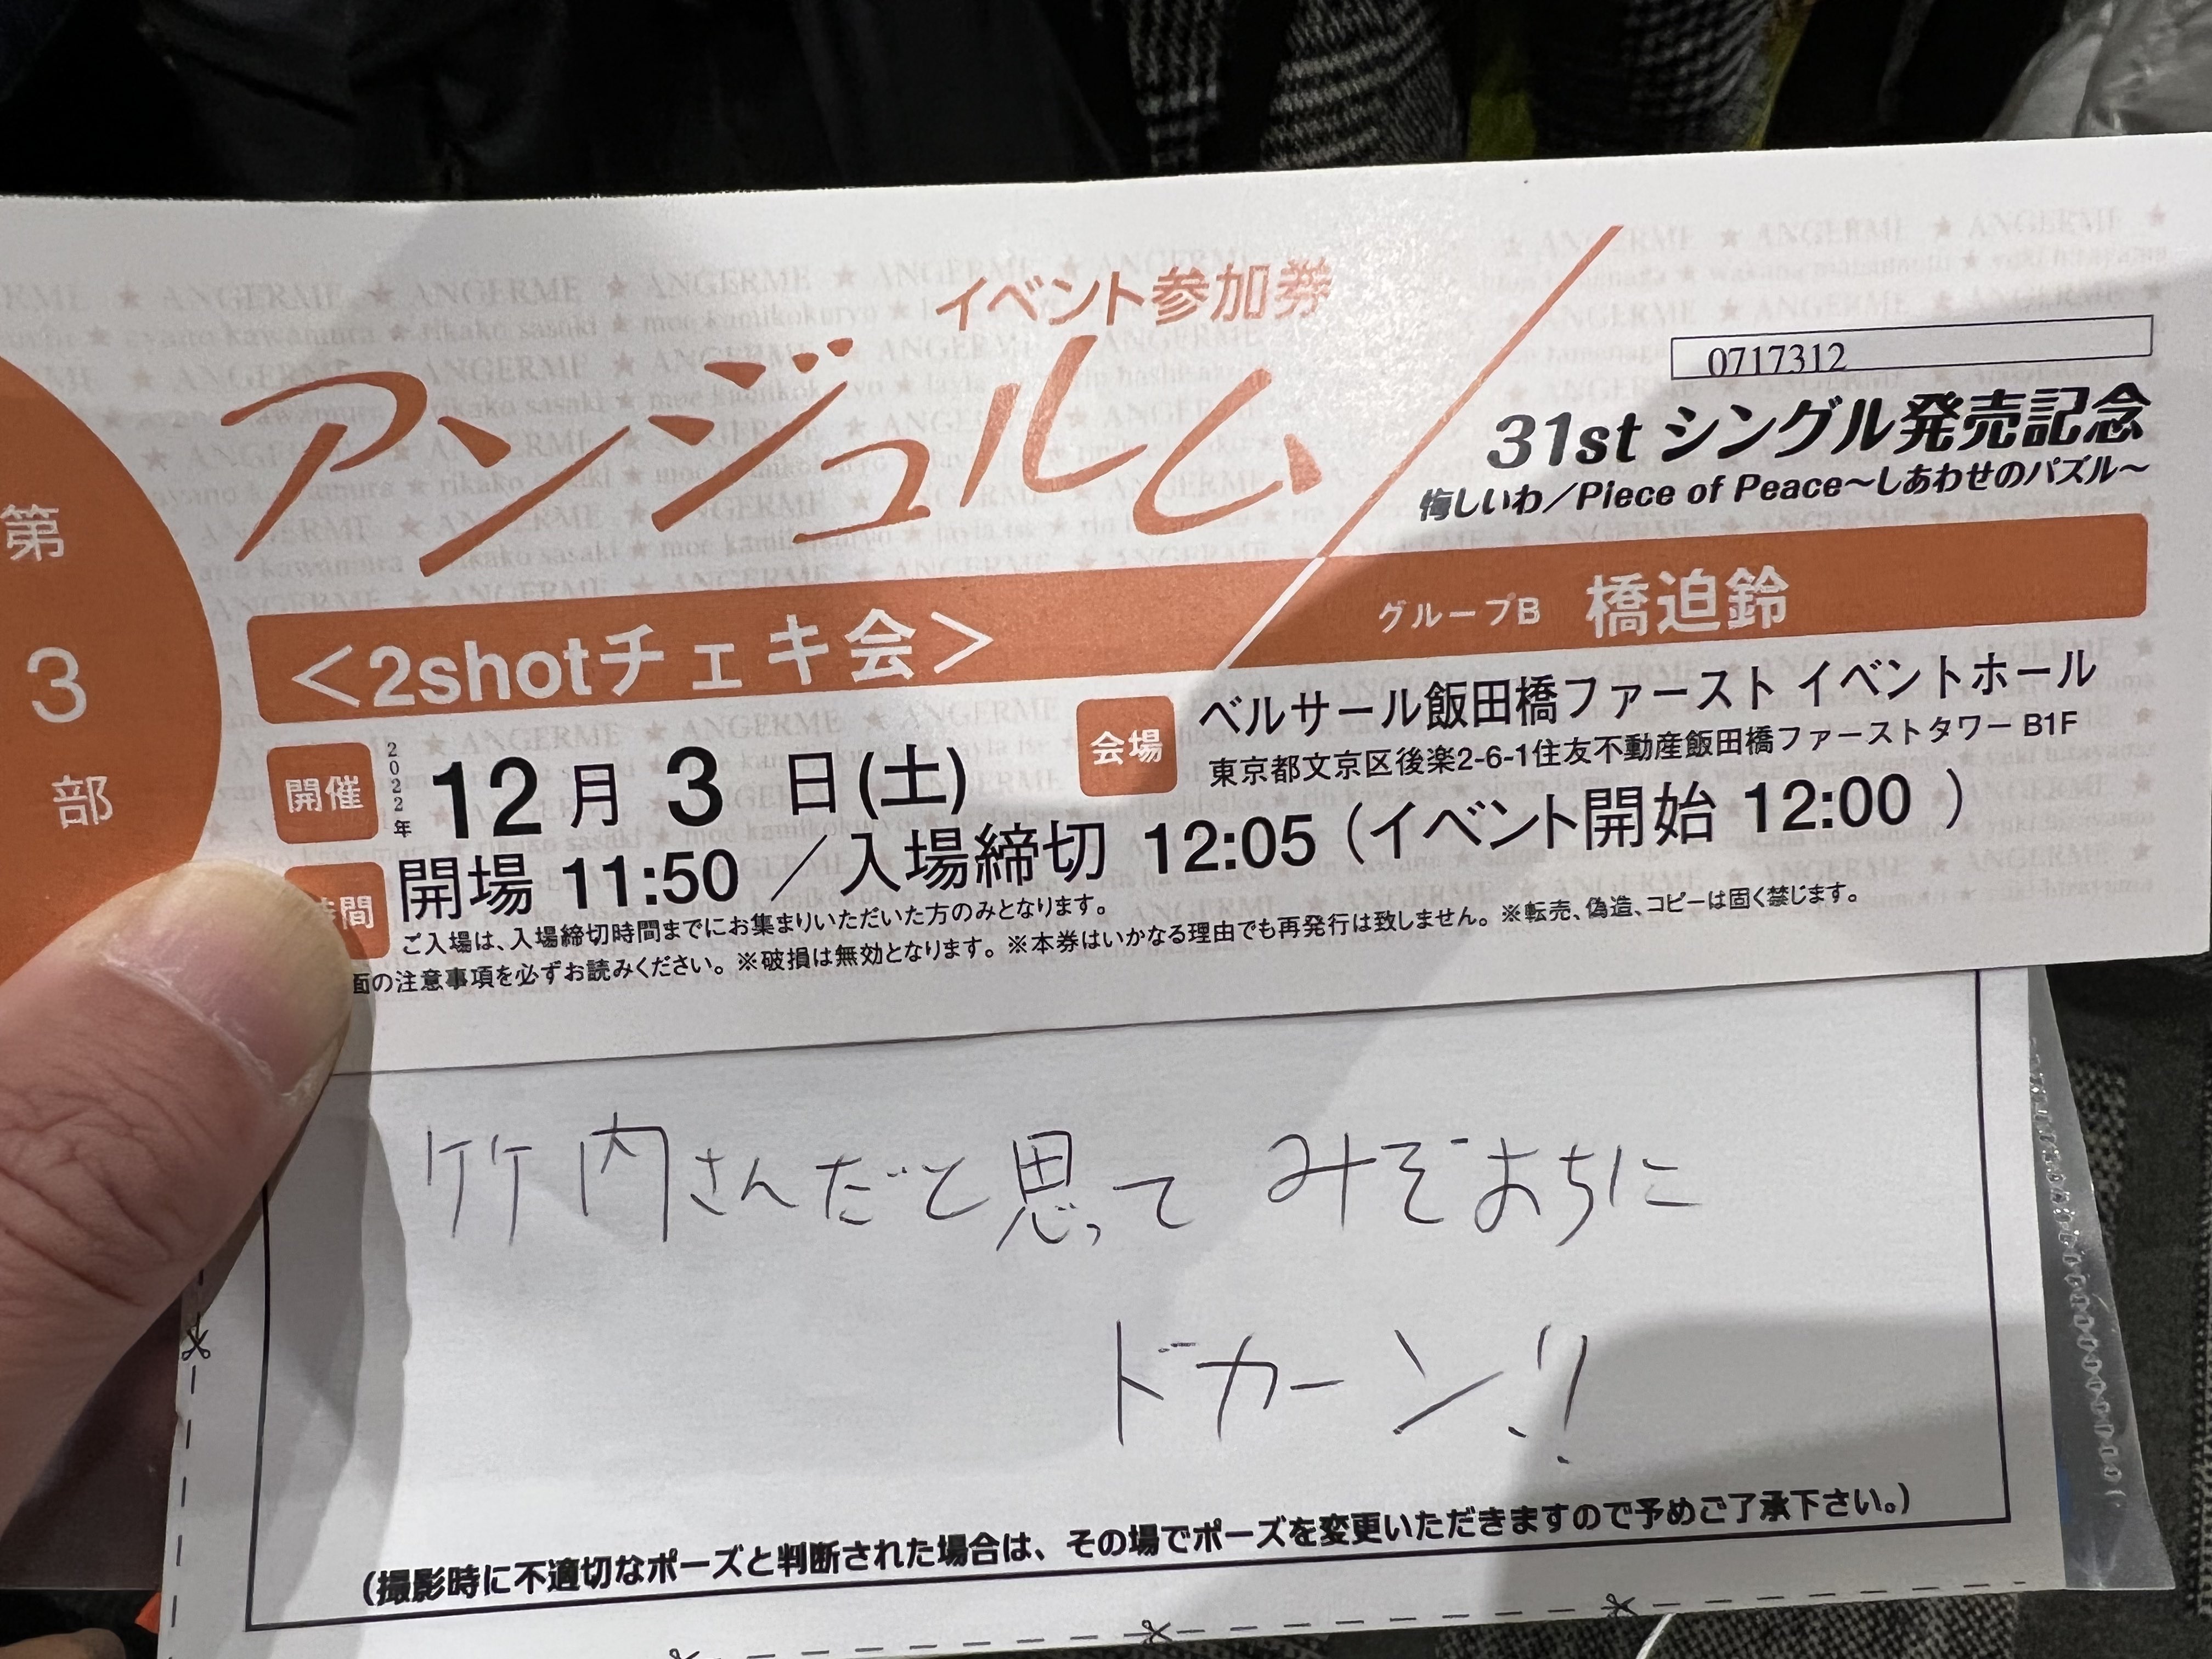 イベント参加券
アンジュルム
0717312
31st シングル発売記念
悔しいわ／Piece of Peace～しあわせのパズル～
第3部
＜2shotチェキ会＞
グループB 橋迫鈴
開催 2022年 12月3日(土)
会場 ベルサール飯田橋ファースト イベントホール
東京都文京区後楽2-6-1住友不動産飯田橋ファーストタワー B1F
間 開場 11:50 ／入場締切 12:05 (イベント開始 12:00 )
ご入場は、入場締切時間までにお集まりいただいた方のみとなります。
面の注意事項を必ずお読みください。※破損は無効となります。※本券はいかなる理由でも再発行は致しません。※転売、偽造、コピーは固く禁じます。
竹内さんだと思って みぞおちに
ドカーン!!
(撮影時に不適切なポーズと判断された場合は、その場でポーズを変更いただきますので予めご了承下さい。)